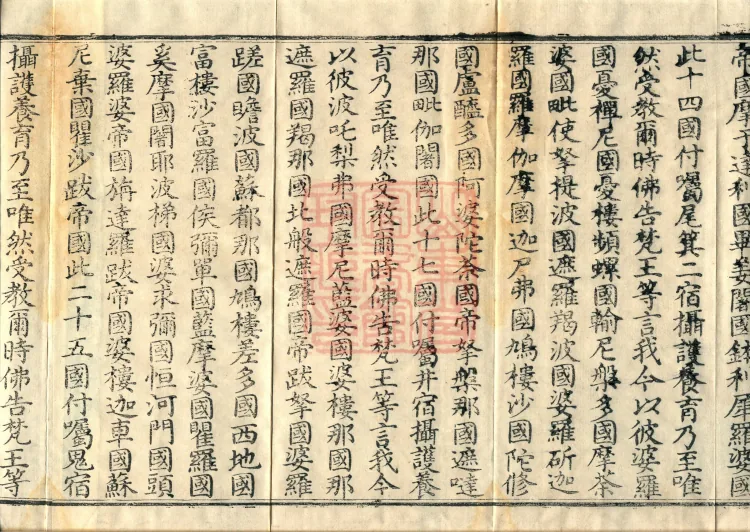 帝國摩
此十四國付囑尾箕二宿攝護養育乃至唯
然受教爾時佛告梵王等言我今以彼婆羅
國憂禪尼國憂樓頻螺國輸尼般多國摩茶
婆國毗使拏提波國遮羅羯波國婆羅斫迦
羅國羅摩伽摩國迦尸弗國鳩樓沙國陀修
國盧醯多國阿婆陀茶國帝拏槃那國遮噠
那國毗伽闍國此十七國付囑井宿攝護養
育乃至唯然受教爾時佛告梵王等言我今
以彼波吒梨弗國摩尼藍婆國婆樓那國那
遮羅國羯那國北般遮羅國帝跋拏國婆羅
蹉國瞻波國蘇都那國鳩樓差多國西地國
富樓沙富羅國侯彌單國藍摩婆國瞿羅國
奚摩國闍耶波梯國婆求彌國恒河門國頭
婆羅婆帝國旃達羅跋帝國婆樓迦車國蘇
尼棄國瞿沙跋帝國此二十五國付囑鬼宿
攝護養育乃至唯然受教爾時佛告梵王等